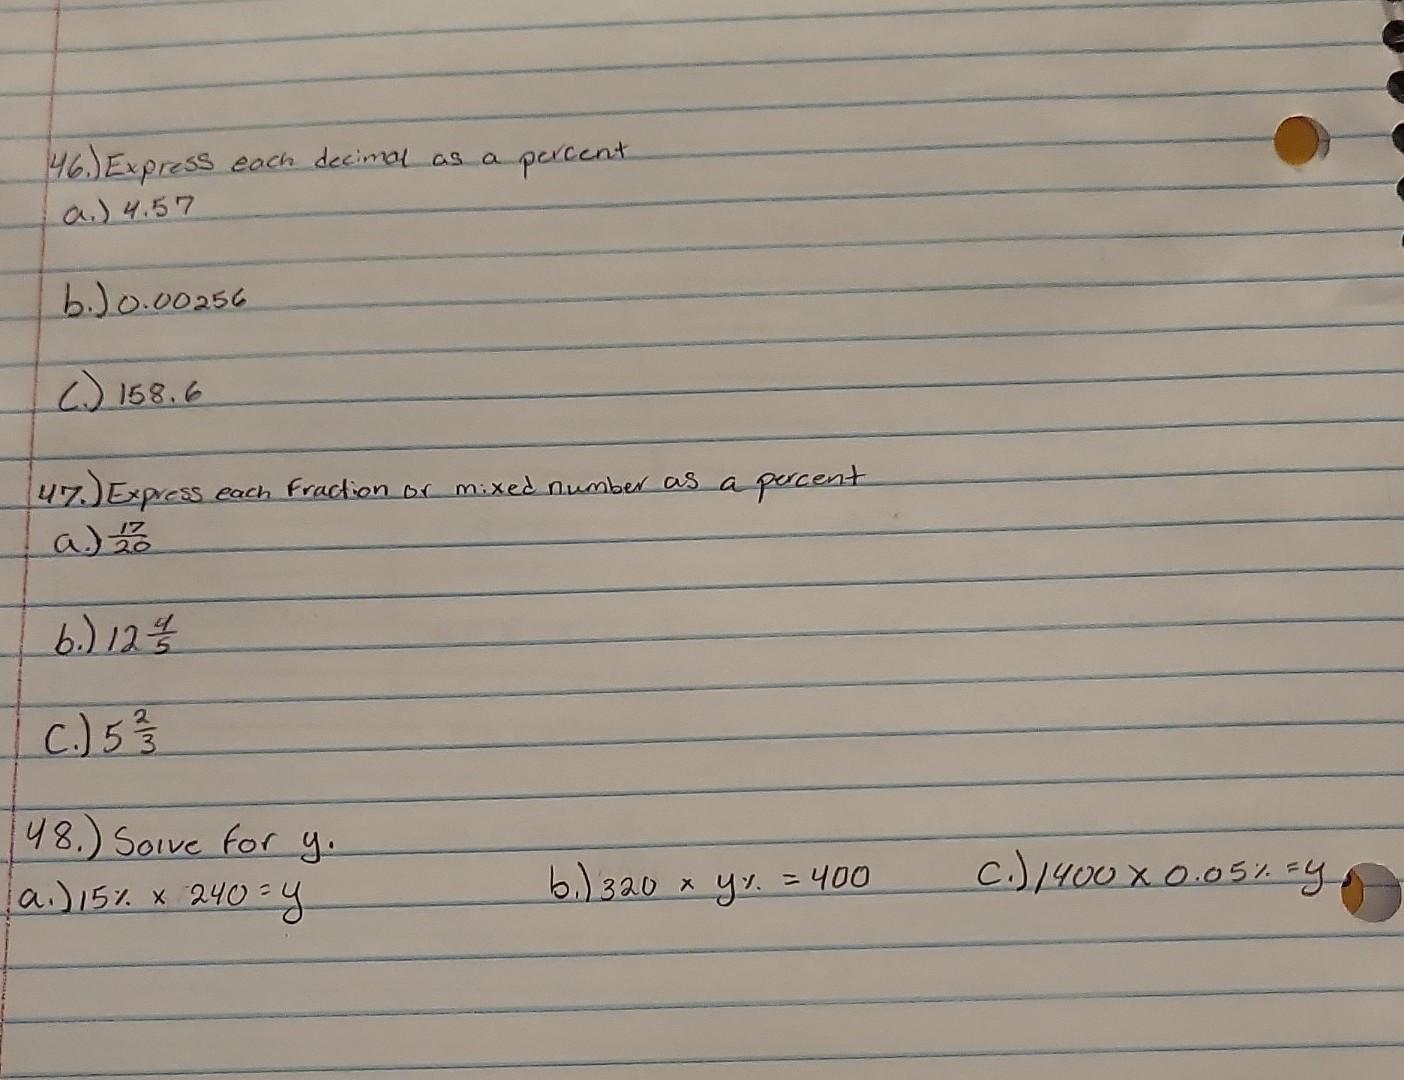 46.) Express each decimal as a percent
a.) 4.57
b.) 0.00256
c.) 158.6
47.) Express each fraction or mixed number as a percent
a.) 17/20
b.) 12 4/5
c.) 5 2/3
48.) Solve for y.
a.) 15% x 240 = y b.) 320 x y% = 400 c.) 1400 x 0.05% = y